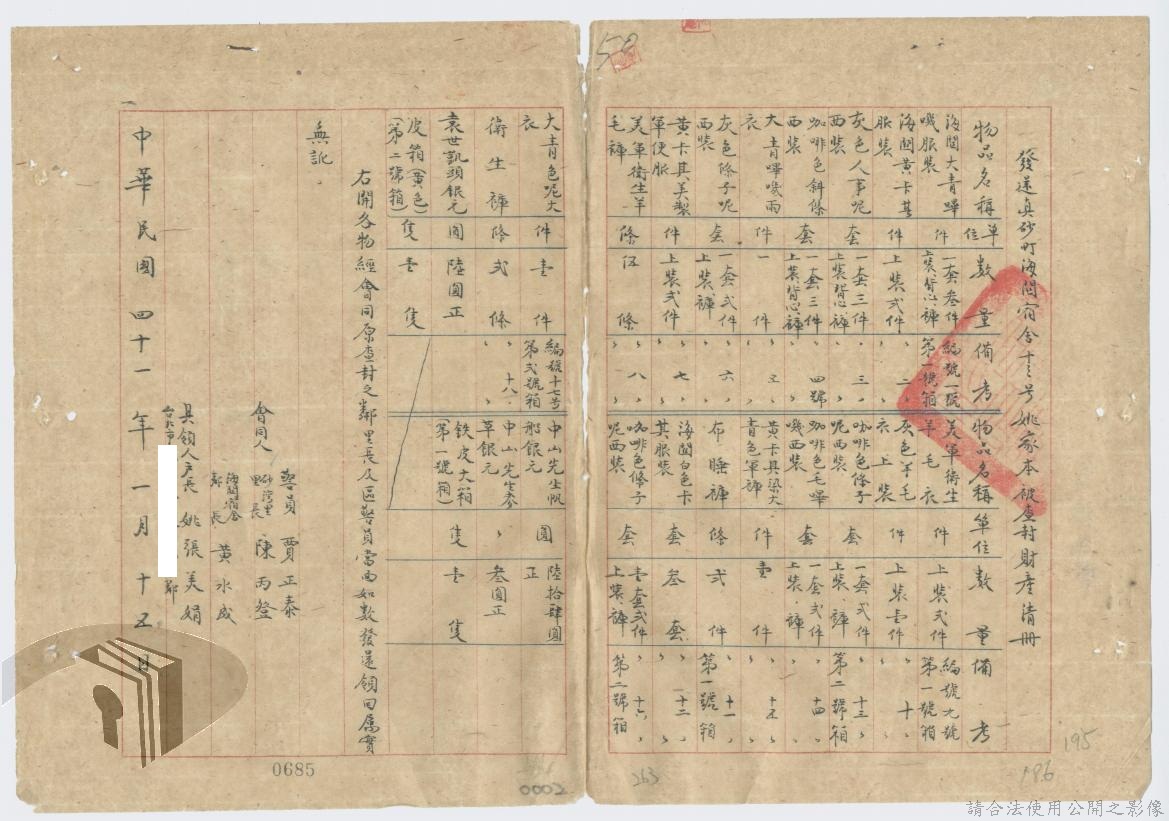 發還真砂町海関宿舍十三号姚家本被查封財產清冊
物品名稱 單位 數量 備考 物品名稱 單位 數量 備考
海関大青嗶嘰服裝 件 一套叁件 上裝.背心.褲 編號一號 第一號箱 美軍衛生羊毛衣 件 上裝弍件 編號九號 第一號箱
海関黃卡其服裝 件 上裝弍件 〃二、〃 灰色羊毛衣上裝 件 上裝壹件 〃十、〃
灰色人事呢西裝 套 一套三件 上裝.背心.褲 〃三、〃 咖啡色條子呢西裝 套 一套弍件 上裝.褲 〃十三〃 第二號箱
咖啡色斜條西裝 套 一套三件 上裝背心.褲 〃四號〃 咖啡色毛嗶嘰西裝 套 一套弍件 上裝.褲 〃十四〃
大青嗶嘰雨衣 件 一件 〃五、〃 黃卡其染大青色軍褲 件 壹件 〃十五〃
灰色條子呢西裝 套 一套弍件 上裝褲 〃六、〃 布睡褲 條 弍件 〃十一、 第一號箱
黃卡其美製軍便服 件 上裝弍件 〃七、〃 海関白色卡其服裝 套 叁套 〃十二〃
美軍衛生羊毛褲 條 伍條 〃八、〃 咖啡色條子呢西裝 套 壹套弍件 上裝.褲 〃十六、 第二號箱
大青色呢大衣 件 壹件 編號十七号 第弍號箱 中山先生帆船銀元 圓 陸拾肆圓正
衛生褲 條 弍條 〃十八〃 中山先生叁草銀元 〃 叁圓正
袁世凱頭銀元 圓 陸圓正 鉄皮大箱（第一號箱） 隻 壹隻
皮箱（黃色）（第二號箱） 隻 壹隻
右開各物經會同原查封之鄰里長及區警員當面如數發還領回屬實
無訛
會同人 警員 賈正泰
砂灣里里長 陳丙登
海関宿舍鄰長 黃水成
具領人戶長 姚張美娟
台北市
鄰
中華民國四十一年一月十五日
0685
0002
263
186
195
請合法使用公開之影像